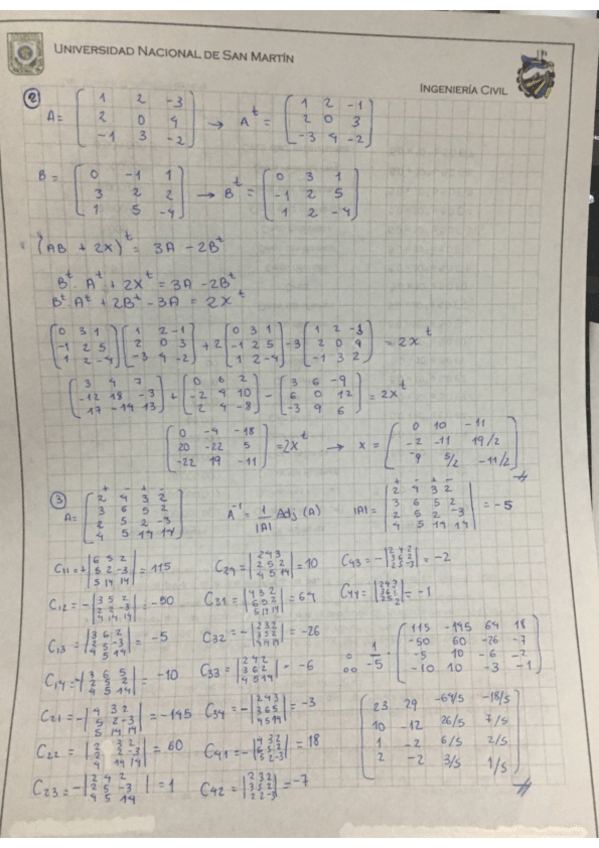 UNIVERSIDAD NACIONAL DE SAN MARTÍN
INGENIERÍA CIVIL
② A = [1 2 -3; 2 0 4; -1 3 -2] → A^t = [1 2 -1; 2 0 3; -3 4 -2]
B = [0 -1 1; 3 2 2; 1 5 -4] → B^t = [0 3 1; -1 2 5; 1 2 -4]
(AB + 2X)^t = 3A - 2B^t
B^t. A^t + 2X^t = 3A - 2B^t
B^t. A^t + 2B^t - 3A = 2X^t
[0 3 1; -1 2 5; 1 2 -4] [1 2 -1; 2 0 3; -3 4 -2] + 2 [0 3 1; -1 2 5; 1 2 -4] - 3 [1 2 -3; 2 0 4; -1 3 2] = 2x^t
[3 4 7; -12 18 -3; 17 -14 13] + [0 6 2; -2 4 10; 2 4 -8] - [3 6 -9; 6 0 12; -3 9 6] = 2x^t
[0 -4 -18; 20 -22 5; -22 19 -11] = 2x^t → x = [0 10 -11; -2 -11 19/2; -9 5/2 -11/2]
③ A = [2 4 3 2; 3 6 5 2; 2 5 2 -3; 4 5 14 14] A^-1 = 1/|A| Adj (A) |A| = |2 4 3 2; 3 6 5 2; 2 5 2 -3; 4 5 14 14| = -5
C11 = + |6 5 2; 5 2 -3; 5 14 14| = 115 C24 = |2 4 3; 2 5 2; 4 5 14| = 10 C43 = - |2 4 2; 3 6 2; 2 5 -3| = -2
C12 = - |3 5 2; 2 2 -3; 4 14 14| = -50 C31 = |4 3 2; 6 5 2; 5 14 14| = 64 C44 = |2 4 3; 3 6 5; 2 5 2| = -1
C13 = |3 6 2; 2 5 -3; 4 5 14| = -5 C32 = - |2 3 2; 3 5 2; 4 14 14| = -26
C14 = - |3 6 5; 2 5 2; 4 5 14| = -10 C33 = |2 4 2; 3 6 2; 4 5 14| = -6 1/-5 · [115 -145 64 18; -50 60 -26 -7; -5 10 -6 -2; -10 10 -3 -1]
C21 = - |4 3 2; 5 2 -3; 5 14 14| = -145 C34 = - |2 4 3; 3 6 5; 4 5 14| = -3
C22 = |2 3 2; 2 2 -3; 4 14 14| = 60 C41 = - |4 3 2; 6 5 2; 5 2 -3| = 18 [23 29 -64/5 -18/5; 10 -12 26/5 7/5; 1 -2 6/5 2/5; 2 -2 3/5 1/5]
C23 = - |2 4 2; 2 5 -3; 4 5 14| = 1 C42 = |2 3 2; 3 5 2; 2 2 -3| = -7